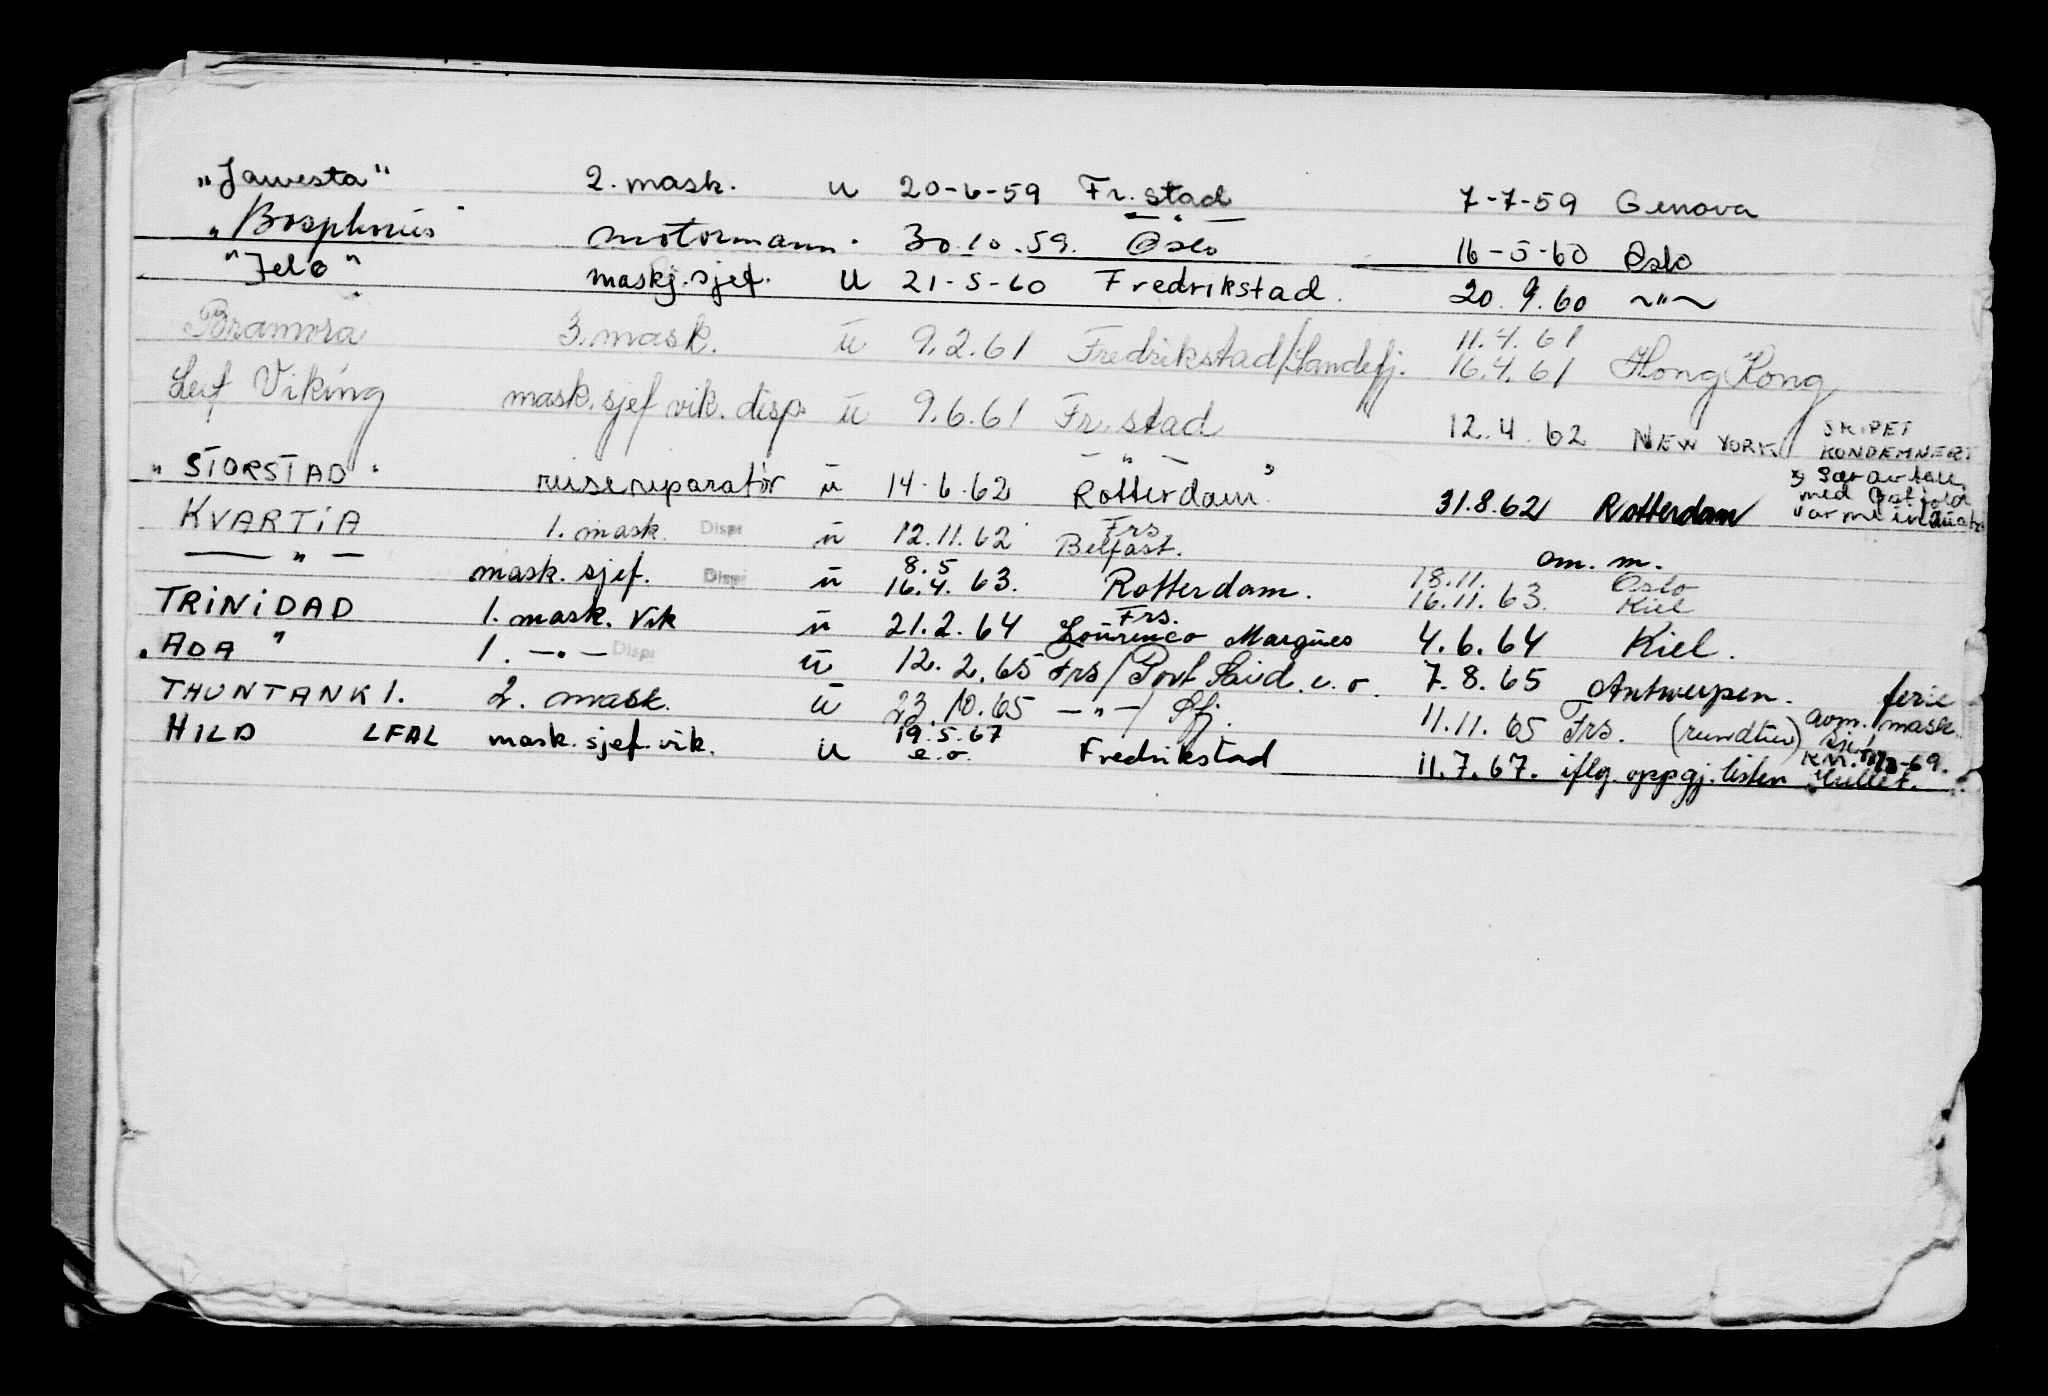 "Jawesta" 2. mask. u 20-6-59 Fr.stad 7-7-59 Genova
"Bosphorus" motormann. 30.10.59. — " — Oslo 16-5-60 Oslo
"Jelø" maskj.sjef. U 21-5-60 Fredrikstad. 20.9.60 ~"~
Bramora 3. mask. u 9.2.61 Fredrikstad/Sandefj. 11.4.61 16.4.61 Hong Kong
Leif Viking mask.sjef vik. disp. u 9.6.61 Fr.stad 12.4.62 NEW YORK SKIPET KONDEMNERT
"STORSTAD" reisereparatør u 14.6.62 — " — Rotterdam" 31.8.62 Rotterdam Sær avtale med
KVARTIA 1. mask. Disp u 12.11.62 Frs Belfast. om. m.
— " — mask. sjef. Disp u 8.5 16.4.63. Rotterdam. 18.11. 16.11.63. Oslo Kiel
TRINIDAD 1. mask. Vik u 21.2.64 Frs. Lourenco Marques 4.6.64 Kiel.
"ADA" 1. —"— Disp u 12.2.65 Frs/Port Said. e.o. 7.8.65 Antwerpen. ferie
THUNTANK 1. 2. mask. u 23.10.65 —"—/Sfj. 11.11.65 Frs. (rundtur) avm. mask. sjef
HILD LFAL mask.sjef.vik. u 19.5.67 e.o. Fredrikstad 11.7.67. iflg. oppgj.listen